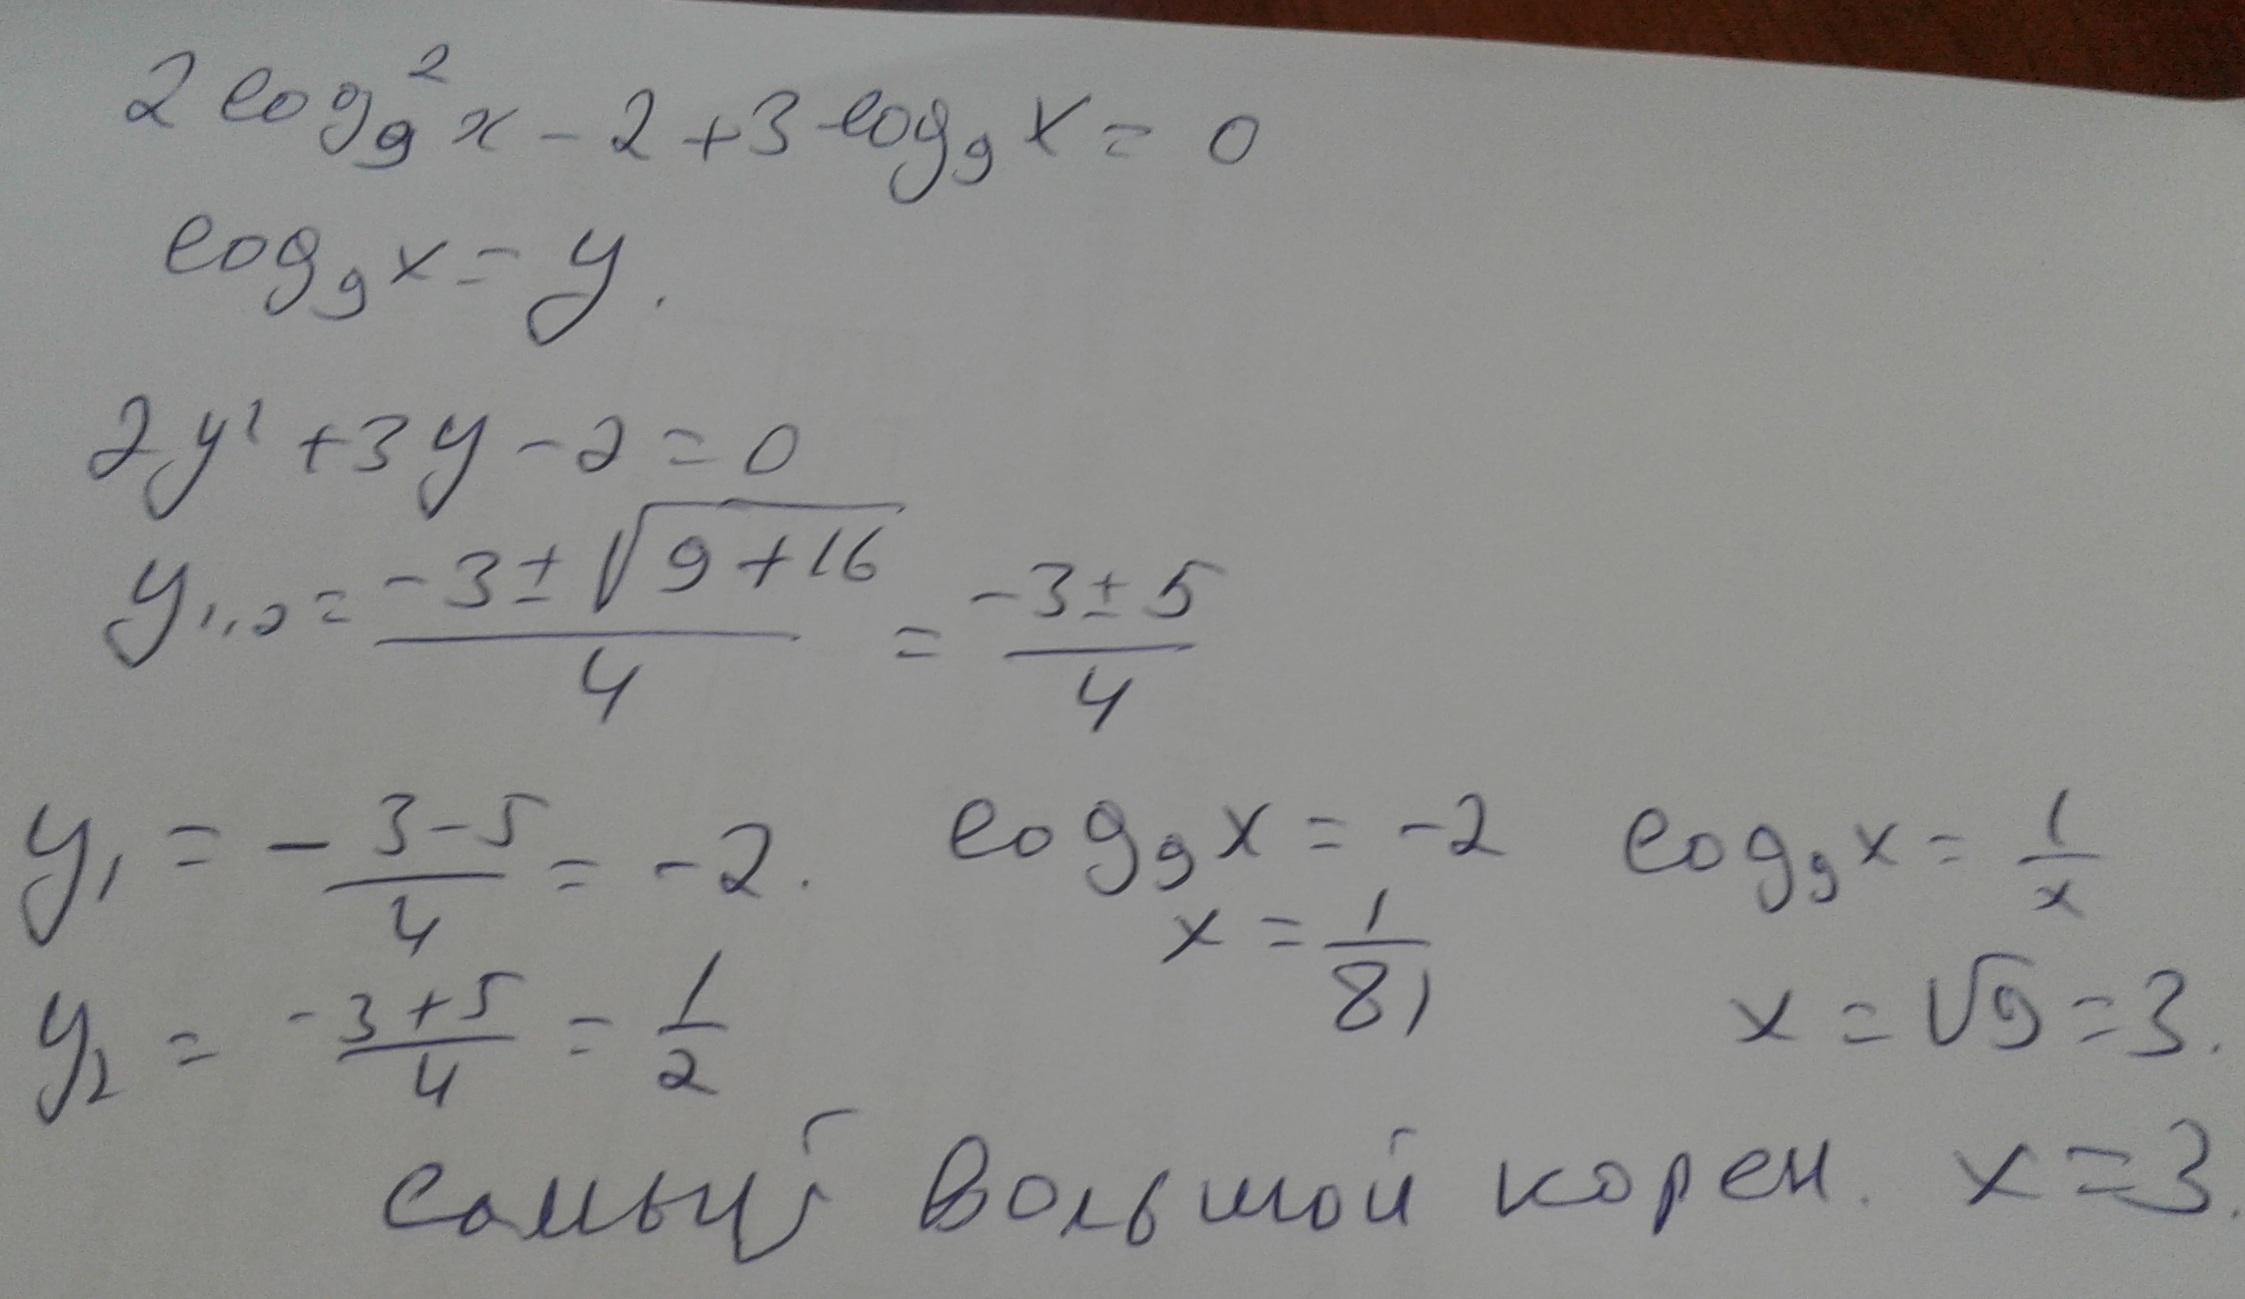 2 log₉² x - 2 + 3 log₉ x = 0
log₉ x = y.
2y² + 3y - 2 = 0
y₁,₂ = (-3 ± √(9 + 16)) / 4 = (-3 ± 5) / 4
y₁ = - (3 - 5) / 4 = -2. log₉ x = -2 log₉ x = 1/x
x = 1/81
y₂ = (-3 + 5) / 4 = 1/2 x = √9 = 3.
самый большой корен. x = 3.